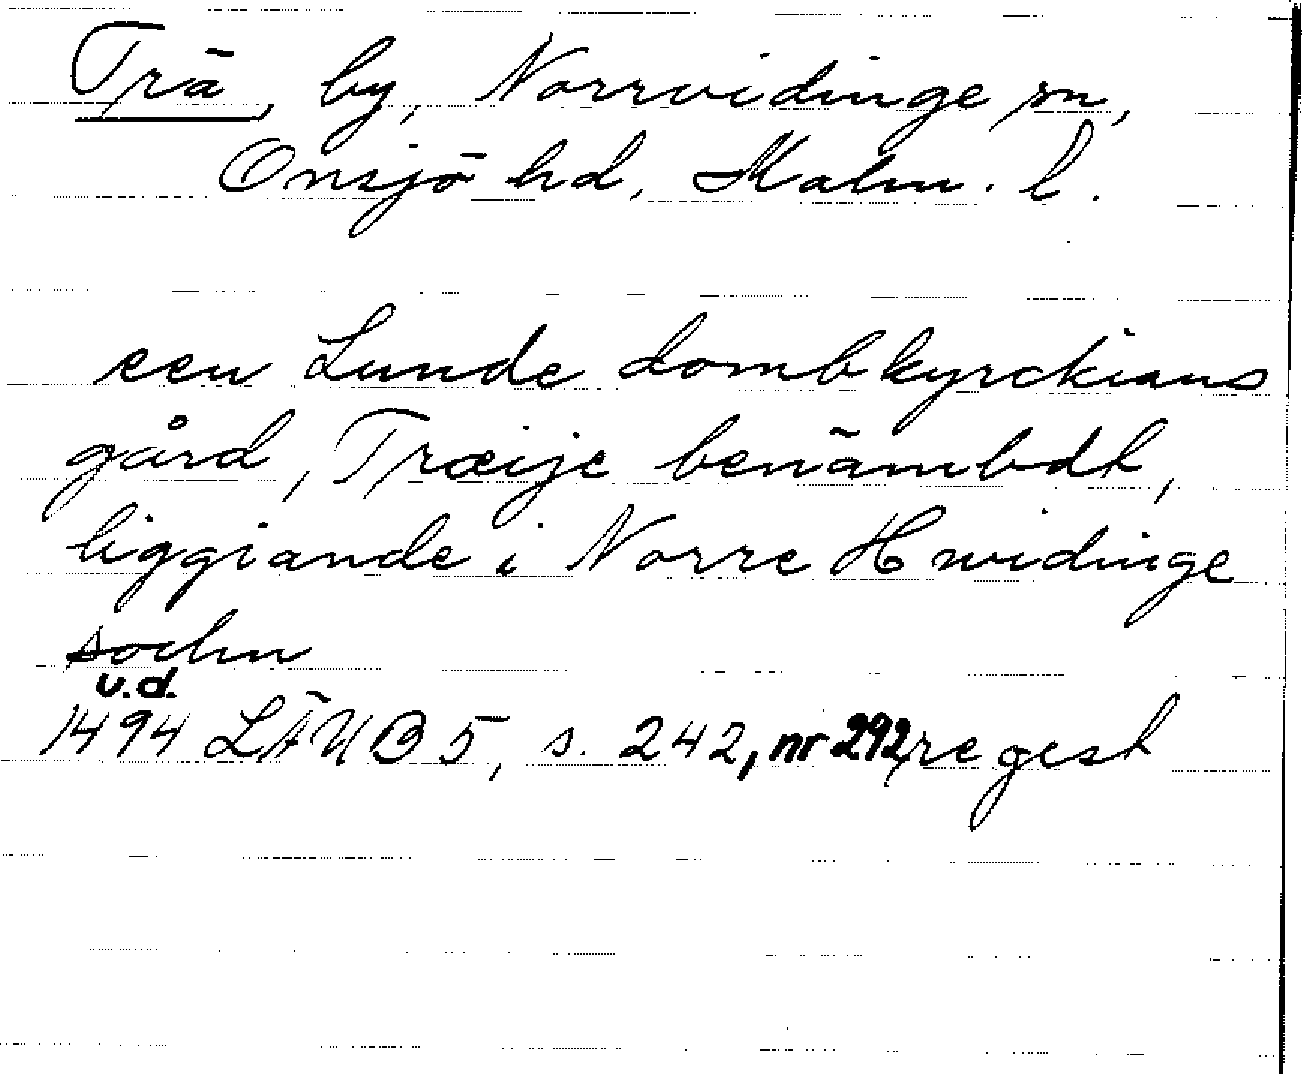 Trä, by, Norrvidinge sn,
Onsjö hd, Malm. l.
een Lunde dombkyrckians
gård, Træije benämbdt,
liggiande i Norre Hwidinge
sochn
u.d.
1494 LÄUB 5, s. 242, nr 292, regest